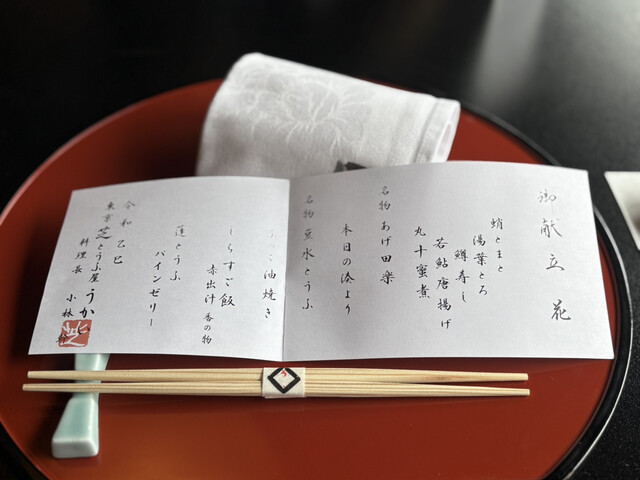 御献立 花
蛸とまと
湯葉とろ
鱒寿し
若鮎唐揚げ
丸十蜜煮
名物 あげ田楽
本日の湊より
名物 豆水とうふ
油焼き
しらすご飯
赤出汁 香の物
蓮とうふ
パインゼリー
令和乙巳
東京 芝とうふ屋うかい
料理長 小林